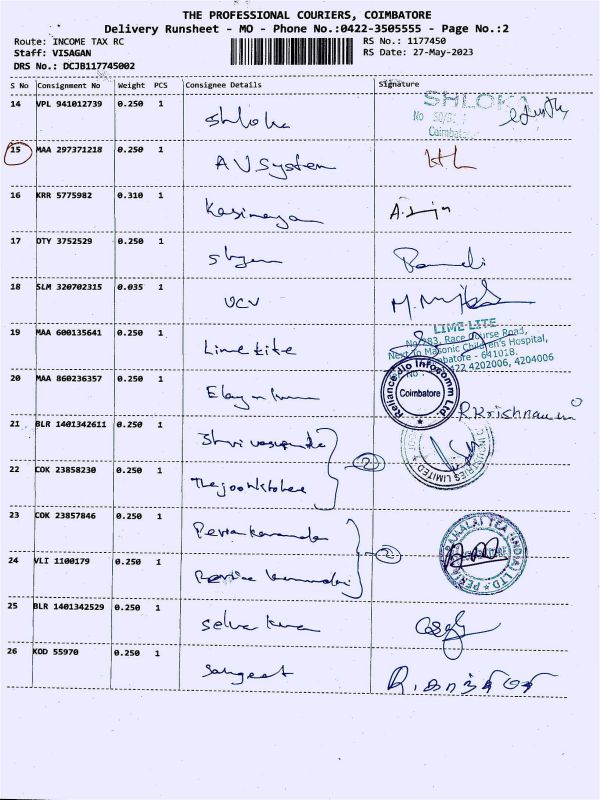 THE PROFESSIONAL COURIERS, COIMBATORE
Delivery Runsheet - MO - Phone No.:0422-3505555 - Page No.:2
Route: INCOME TAX RC
Staff: VISAGAN
DRS No.: DCJB117745002
RS No.: 1177450
RS Date: 27-May-2023
S No Consignment No Weight PCS Consignee Details Signature
14 VPL 941012739 0.250 1 Shloka
SHLOKA
No
Coimbatore
15 MAA 297371218 0.250 1 AV System
16 KRR 5775982 0.310 1
17 DTY 3752529 0.250 1
18 SLM 320702315 0.035 1 UCV
19 MAA 600135641 0.250 1 Lime lite
LIME LITE
No 283, Race Course Road,
Next To Masonic Children's Hospital,
Coimbatore - 641018.
0422 4202006, 4204006
20 MAA 860236357 0.250 1
Reliance Jio Infocomm Ltd.
Coimbatore
R Krishnaveni
21 BLR 1401342611 0.250 1 Shri
LIMITED
22 COK 23858230 0.250 1
2
23 COK 23857846 0.250 1
2
24 VLI 1100179 0.250 1
TEA (INDIA) LTD.
25 BLR 1401342529 0.250 1 Selva
26 KOD 55970 0.250 1 Sangeet